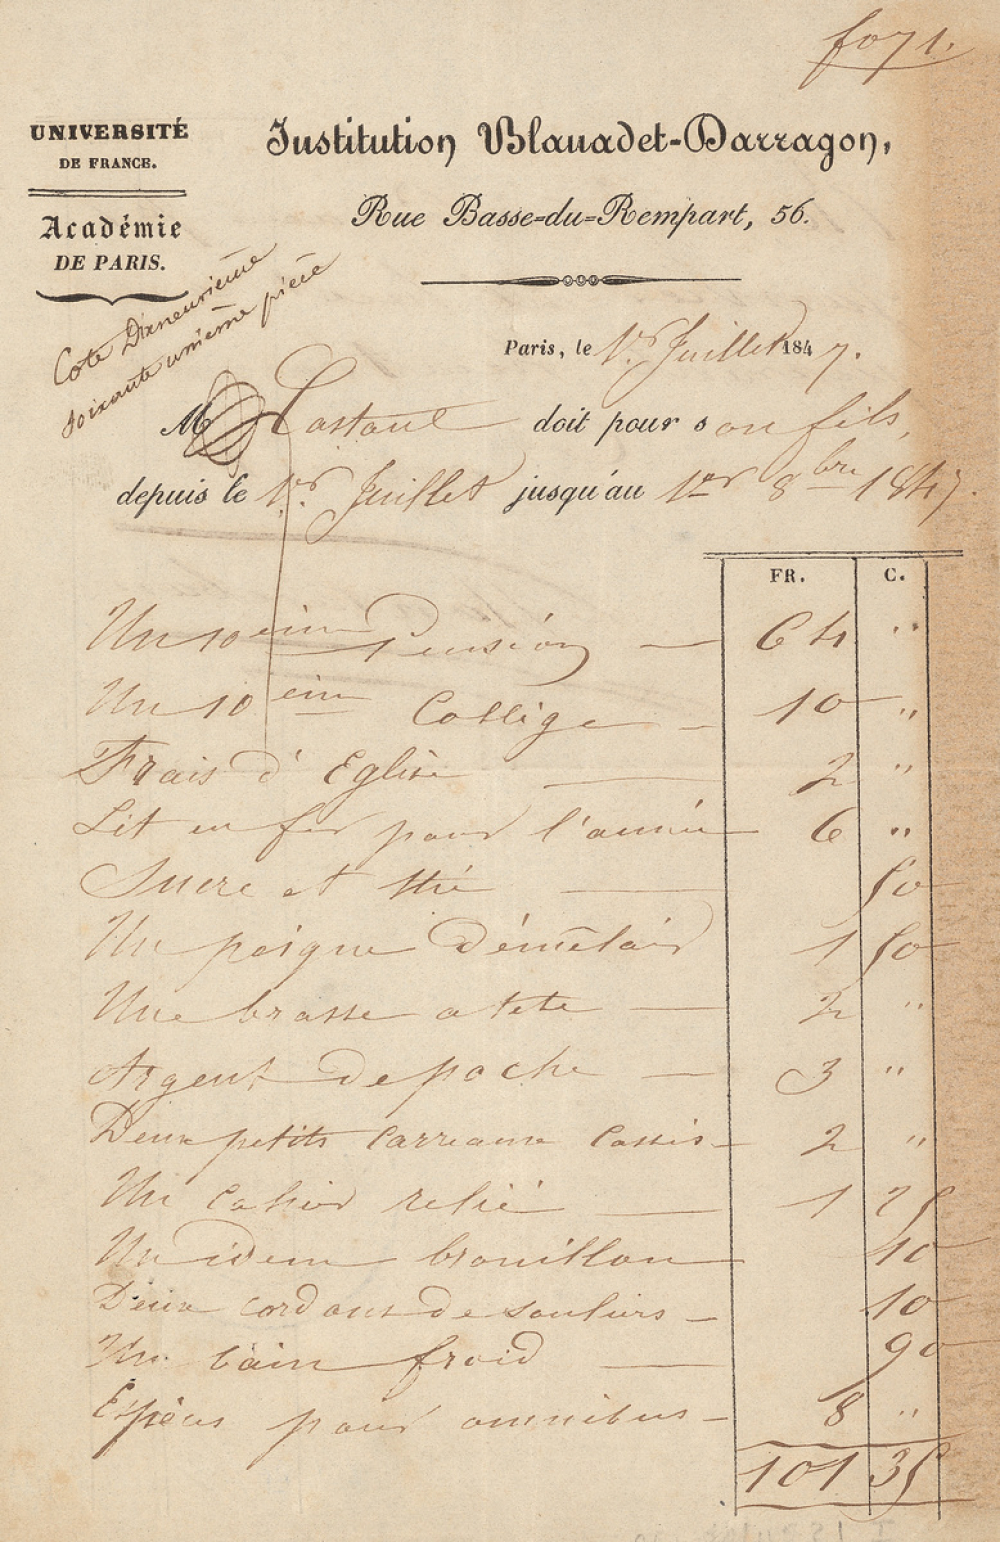 fo 71.
UNIVERSITÉ
DE FRANCE.
Académie
DE PARIS.
Institution Blavadet-Darragon,
Rue Basse-du-Rempart, 56.
Cote Dixneuvième
soixante unième pièce
Paris, le 1er Juillet 1847.
M Castanet doit pour son fils,
depuis le 1er Juillet jusqu'au 1er 8bre 1847.
FR. C.
Un 10eim Pension — 64 "
Un 10eim Collège — 10 "
Frais d'Eglise — 2 "
Lit en fer pour l'année — 6 "
Sucre et thé — 50
Un peigne Démêloir 1 50
Une brosse a tete — 2 "
Argent de poche — 3 "
Deux petits Carreaux Cassés — 2 "
Un Cahier relié — 1 25
Un idem brouillon — 10
Deux cordons de souliers — 10
Un bain froid — 90
Espèces pour omnibus — 8 "
101 35